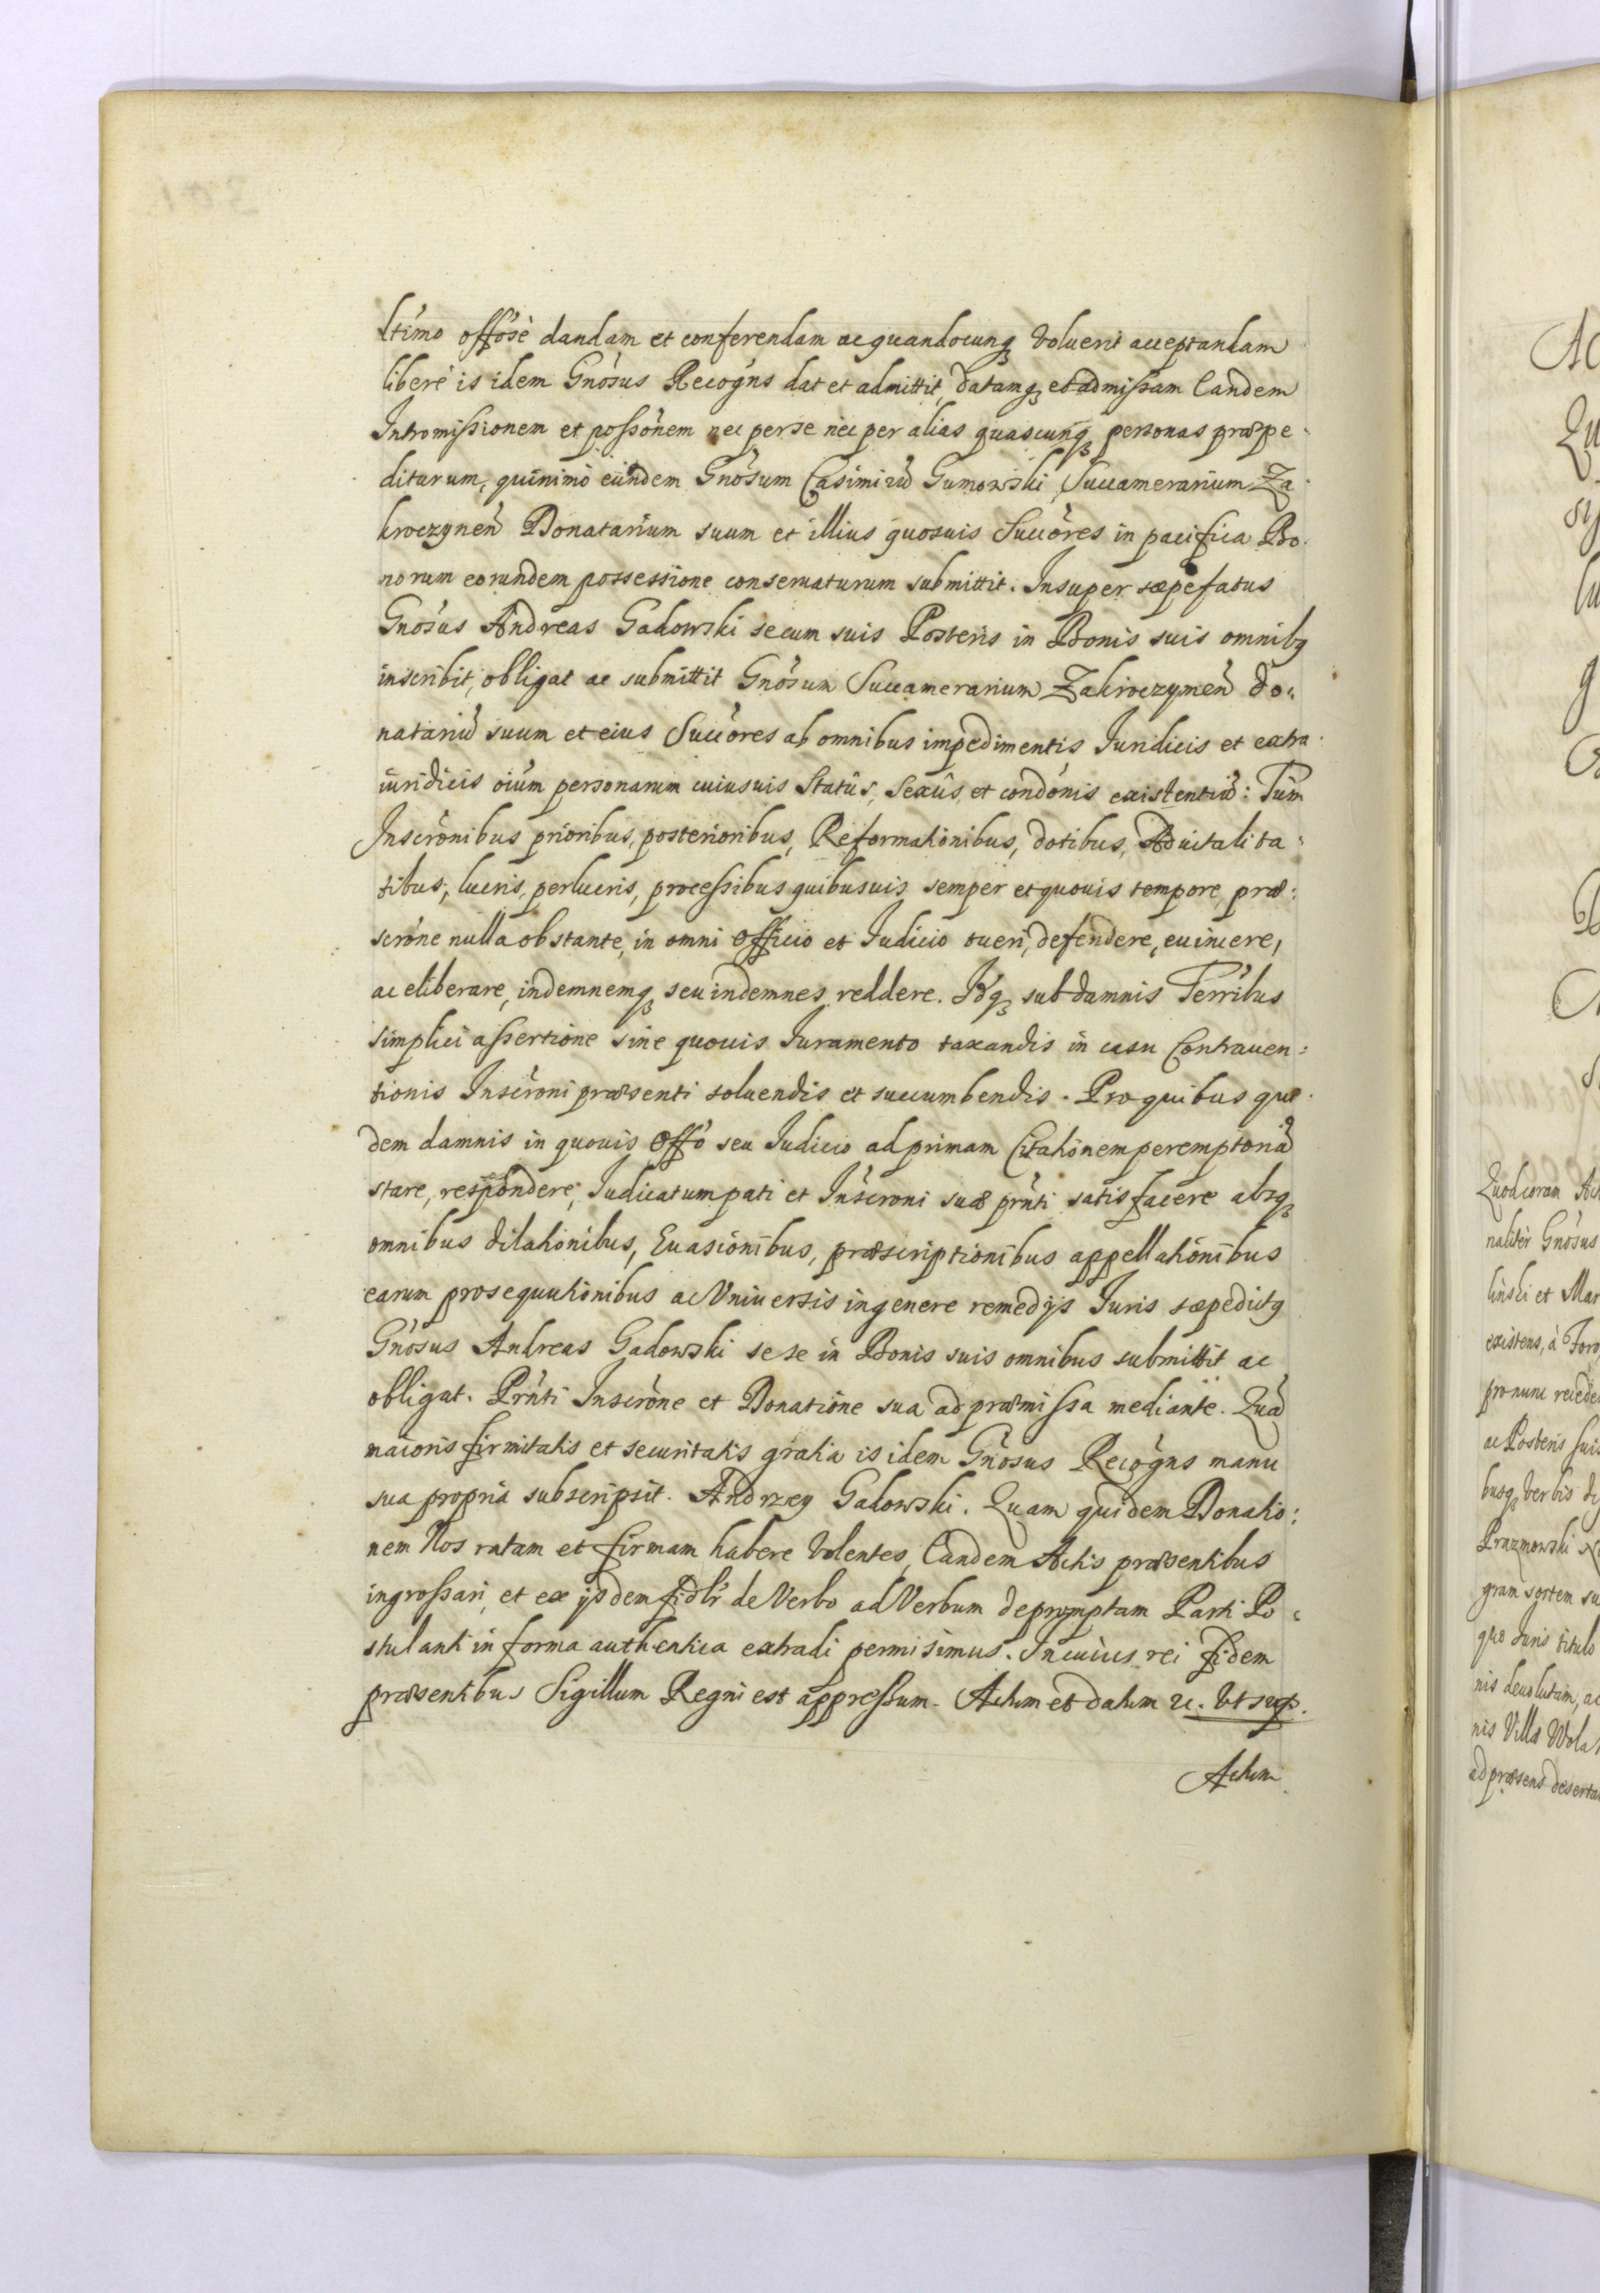 ltimo offosè dandam et conferendam ac quandocunq₃ Voluerit acceptandam
liberè is idem Gnosus Recogns dat et admittit, datamq₃ et admissam Eandem
Intromissionem et possonem nec per se nec per alias quascunq₃ personas præpe
diturum, quinimò eundem Gnosum Casimirũ Gumowski Succamerarium Za
kroczyneñ Donatarium suum et illius quosuis Succores in pacifica Bo
norum eorundem possessione conseruaturum submittit. Insuper sæpefatus
Gnosus Andreas Gadowski secum suis Posteris in Bonis suis omnibq
inscribit, obligat ac submittit Gnosum Succamerarium Zakroczymeñ do:
natariũ suum et eius Succores ab omnibus impedimentis Iuridicis et extra
iuridicis oium personarum cuiusuis Statûs, Sexûs, et condonis existentiũ: Tum
Inscronibus prioribus, posterioribus, Reformationibus, dotibus, Aduitalita:
tibus, lucris, perlucris, processibus quibusuis semper et quouis tempore, præ:
scrone nulla obstante, in omni Officio et Iudicio tueri, defendere, euincere,
ac eliberare, indemnemq₃ seu indemnes reddere. Idq₃ sub damnis Terribus
simplici assertione sine quouis Iuramento taxandis in casu Contrauen:
tionis Inscroni præsenti soluendis et succumbendis. Pro quibus qui
dem damnis in quouis Offo seu Iudicio ad primam Citationem peremptoriã
stare, respondere, Iudicatum pati et Inscroni suæ prnti satisfacere absq₃
omnibus dilationibus, Euasionibus, præscriptionibus appellationibus
earum prosequutionibus ac Vniuersis in genere remedijs Iuris sæpedictq
Gnosus Andreas Gadowski sese in Bonis suis omnibus submittit ac
obligat. Prnti Inscrone et Donatione sua ad præmissa mediante. Quã
maioris firmitatis et securitatis gratia is idem Gnosus Recogns manu
sua propria subscripsit. Andrzey Gadowski. Quam quidem Donatio:
nem Nos ratam et firmam habere Volentes, Eandem Actis præsentibus
ingrossari, et ex ijsdem fidlr de Verbo ad Verbum depromptam Parti Po:
stulanti in forma authentica extradi permisimus. In cuius rei fidem
præsentibus Sigillum Regni est appressum. Actum et datum &c. Vt sup.
Actum
Quod coram Act
naliter Gnosus
linski et Mar
existens, à Foro
pro nunc recede
ac Posteris suis
busq₃ Verbis
Prazmowski
gram sortem su
quo Iuris titulo
nis deuolutam, ac
nis Villa Wola
ad præsens deserta